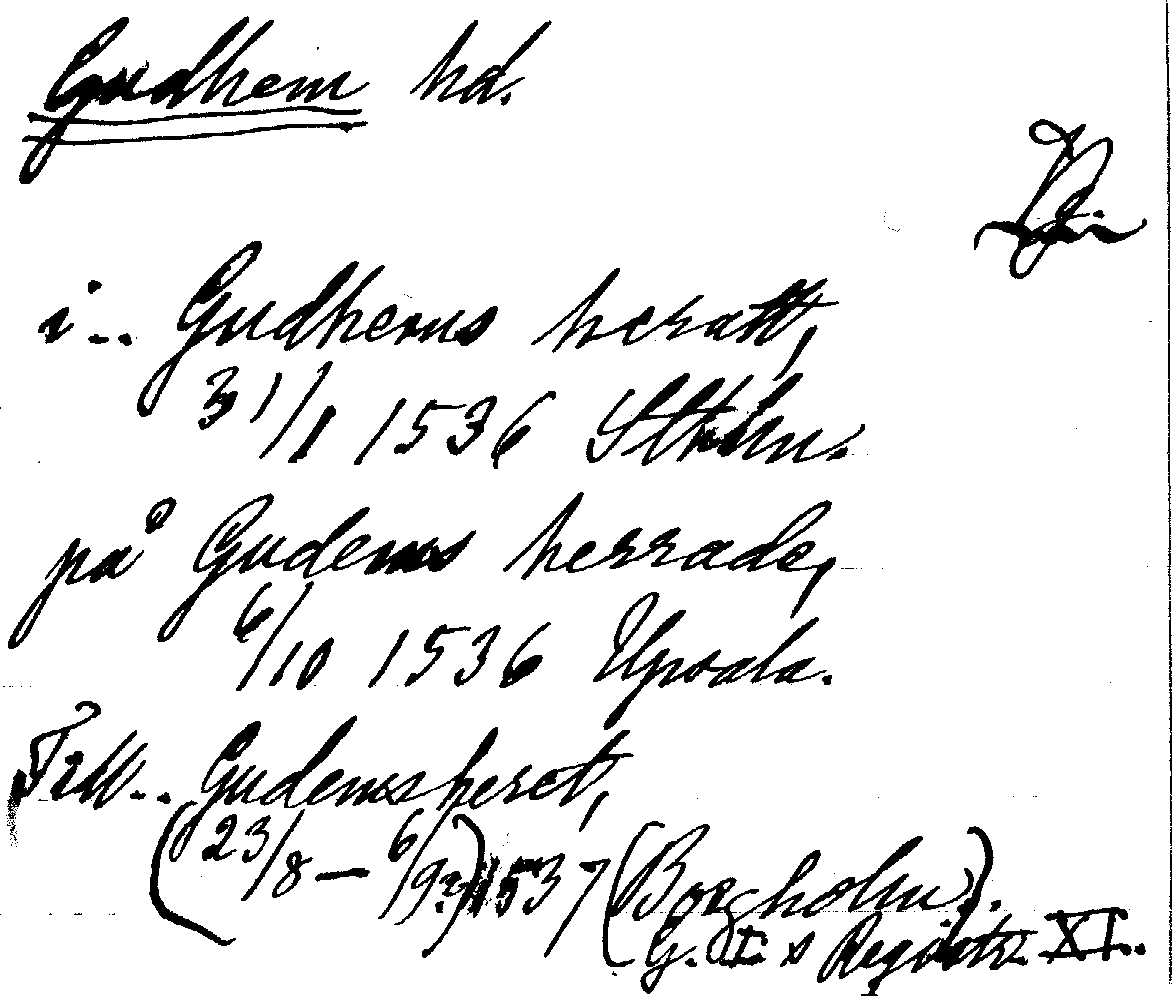 Gudhem hd.
i.. Gudhems heratt,
31/1 1536 Sthlm.
på Gudems herrade,
6/10 1536 Upsala.
Till.. Gudemsheret,
(23/8 — 6/9?) 1537 (Borgholm).
G. I:s Registr. XI..